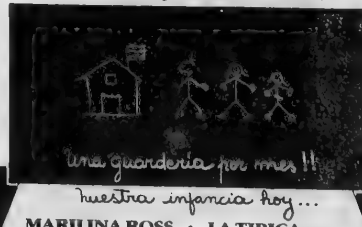 una guardería por mes!!
nuestra infancia hoy...
MARILINA ROSS · LA TIPICA